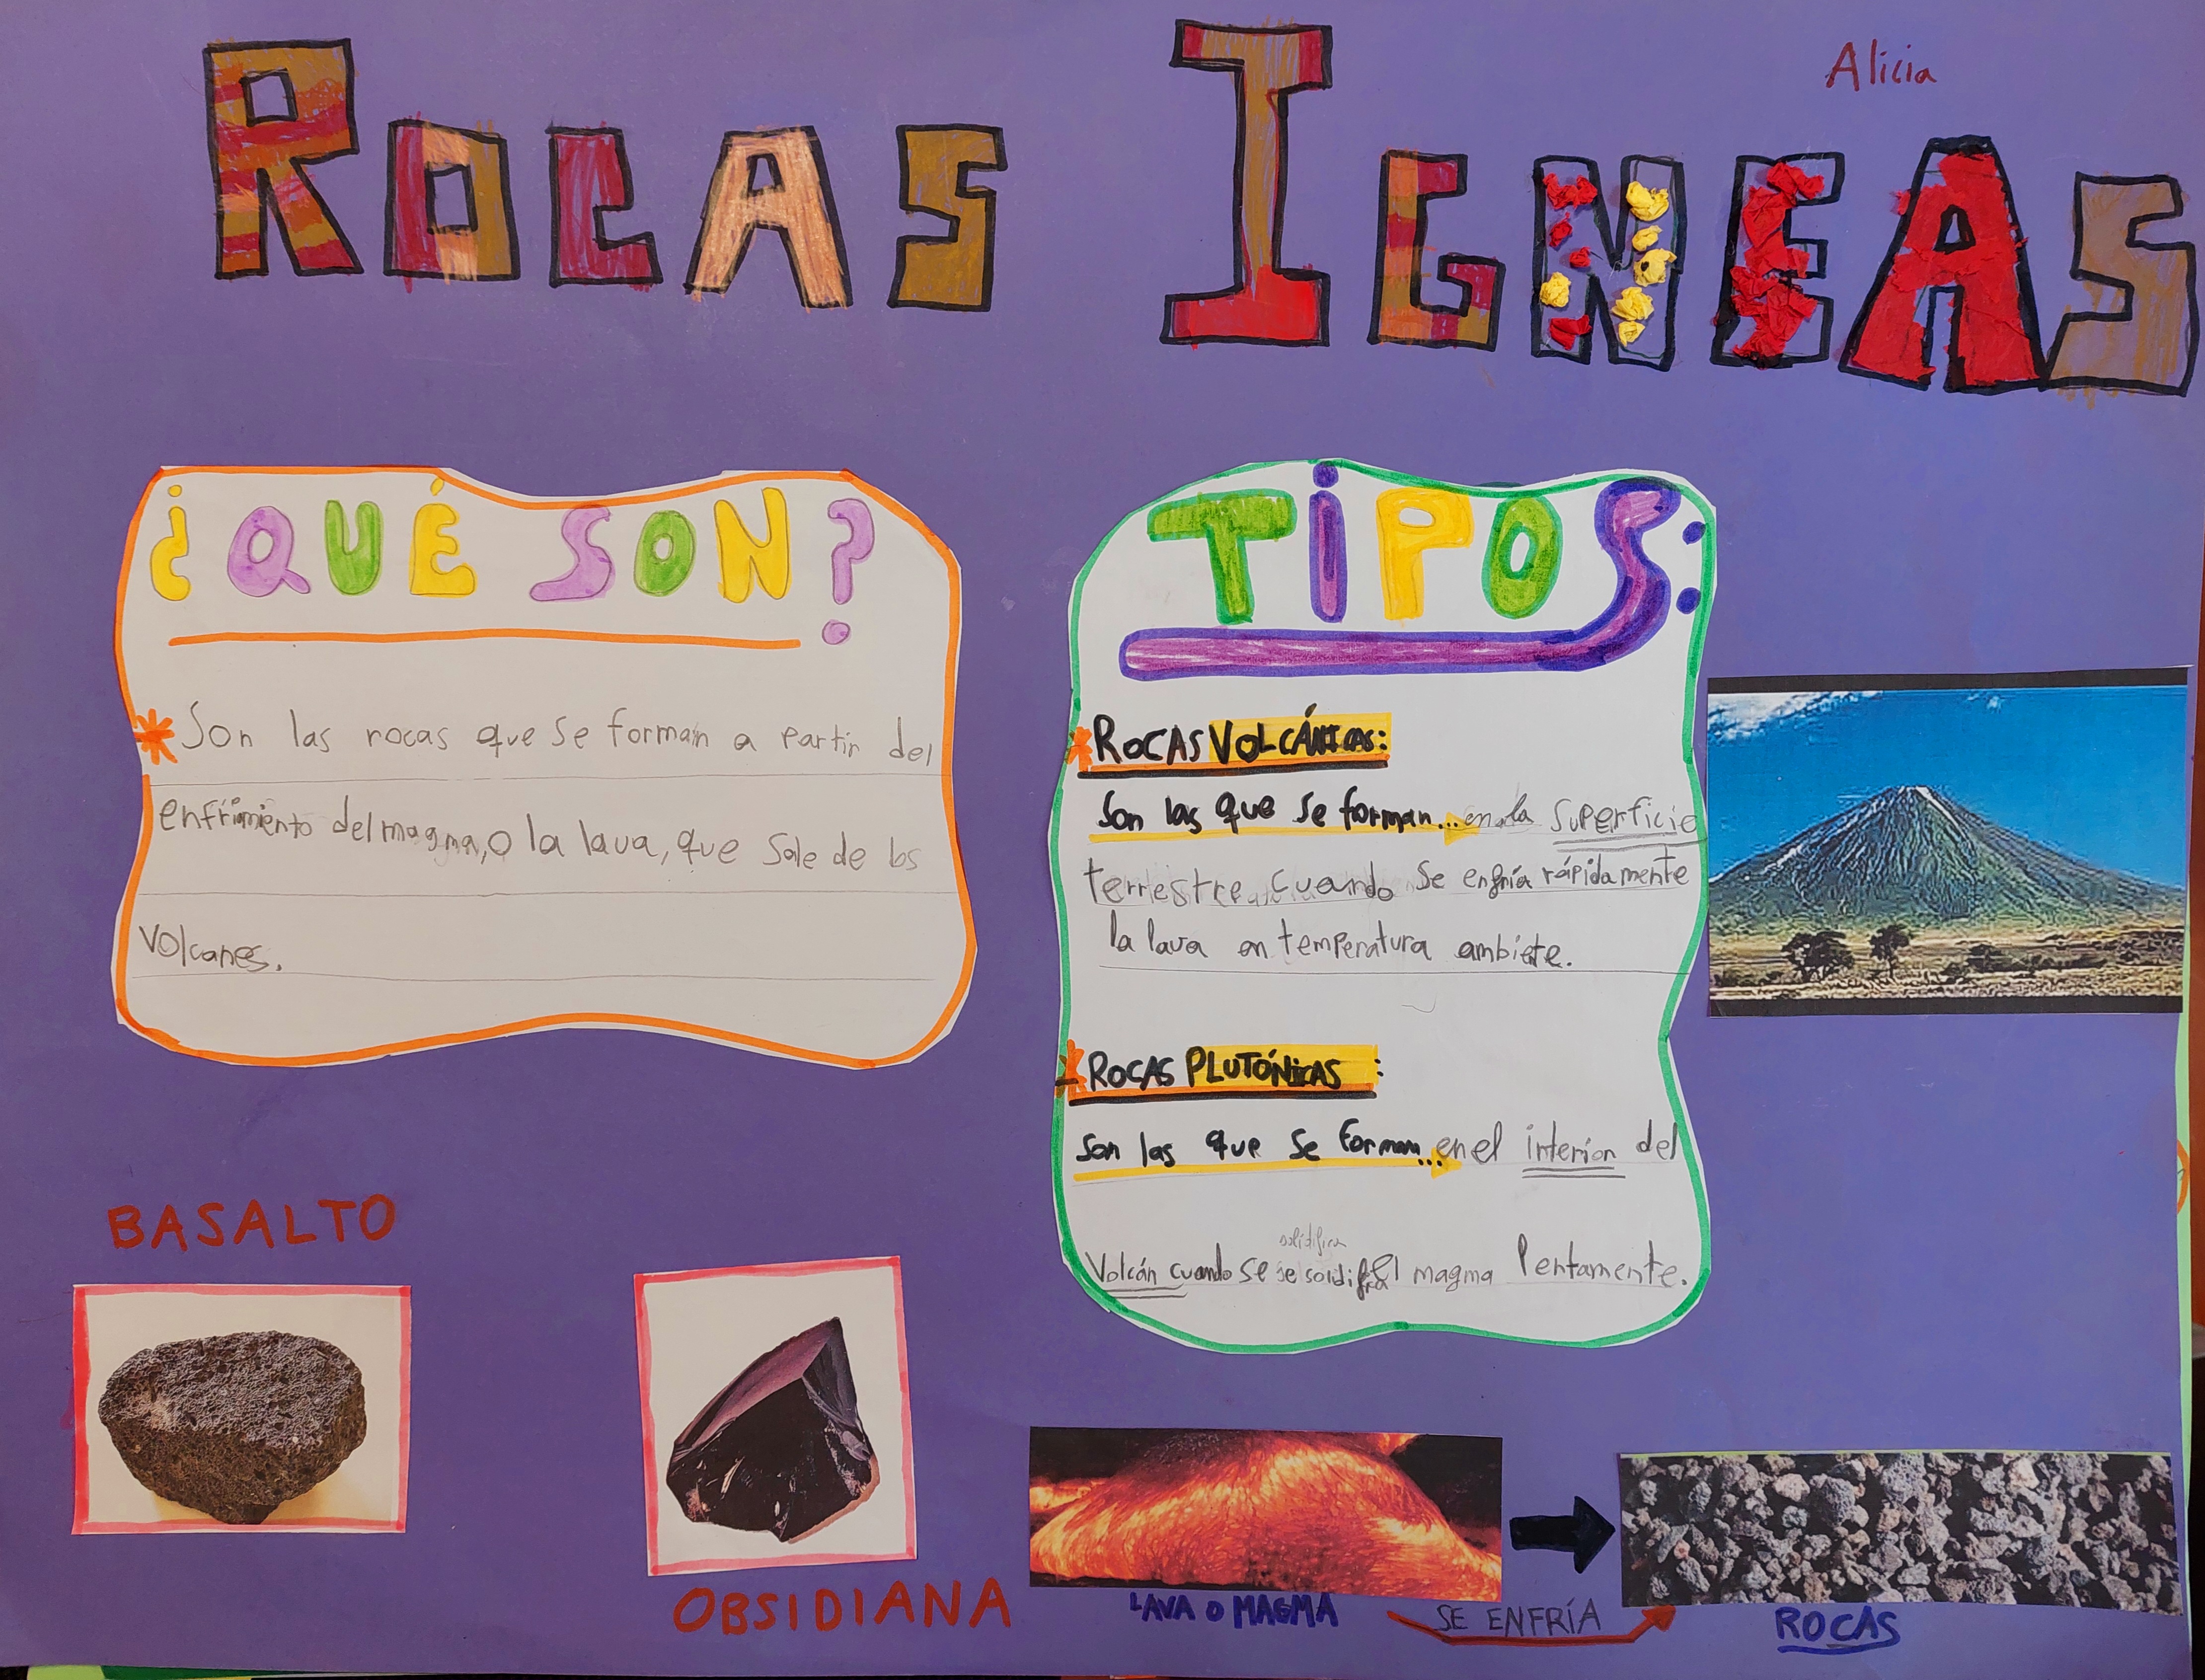 Alicia
ROCAS IGNEAS
¿QUÉ SON?
Son las rocas que se forman a partir del
enfrimiento del magma, o la lava, que sale de los
volcanes.
TIPOS:
ROCAS VOLCÁNICAS:
Son las que se forman... en la superficie
terrestre cuando se enfría rápidamente
la lava en temperatura ambiete.
- ROCAS PLUTÓNICAS :
Son las que se forman... en el interior del
solidifica
Volcán cuando se se el magma lentamente.
BASALTO
OBSIDIANA
LAVA O MAGMA
SE ENFRÍA
ROCAS